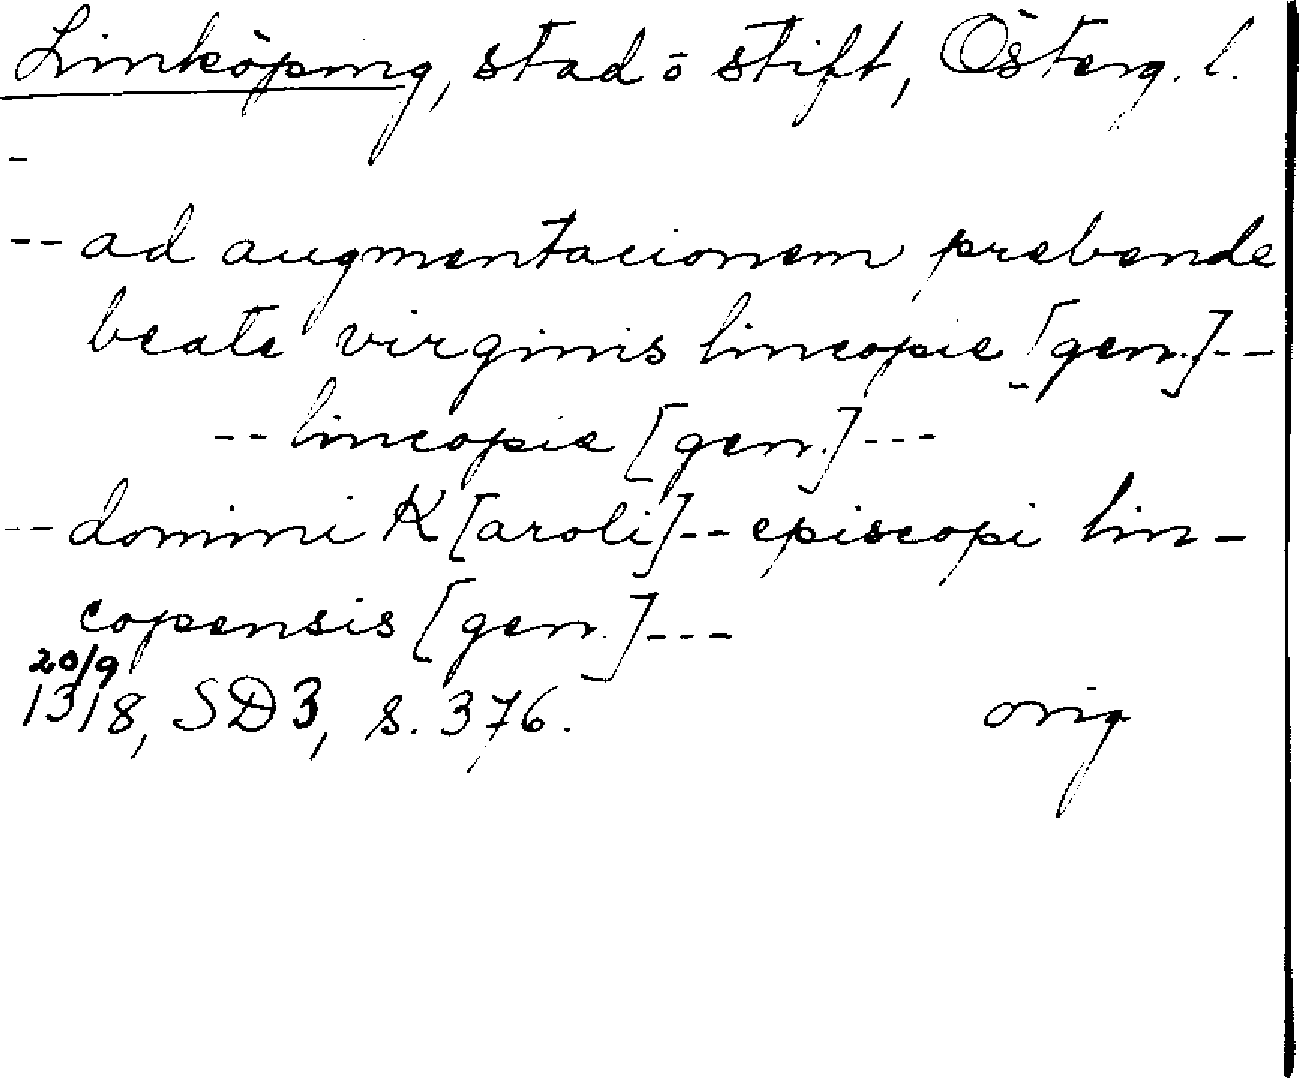 Linköping, stad o stift, Österg. l.
-
-- ad augmentacionem prebende
beate virginis lincopie [gen.]--
-- lincopie [gen.]---
-- domini K[aroli]-- episcopi lin-
copensis [gen.]---
20/9
1318, SD3, s. 376. orig